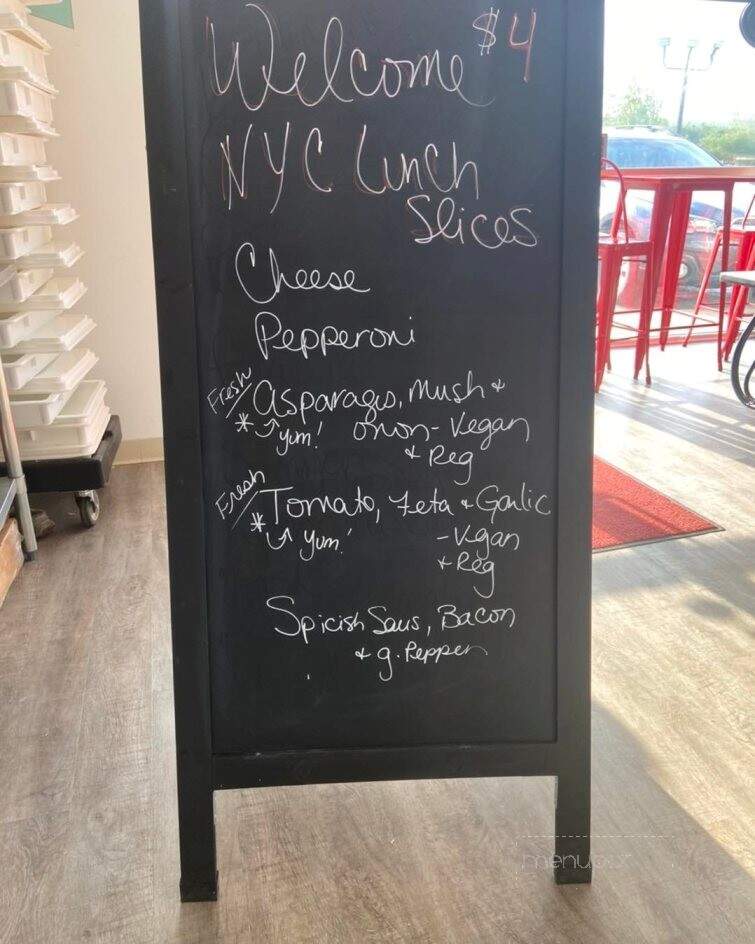 Welcome $4
NYC Lunch
Slices
Cheese
Pepperoni
Fresh Asparagus, Mush +
* Yum! onon - Vegan
+ Reg
Fresh Tomato, Feta + Garlic
* Yum! - Vegan
+ Reg
Spicish Saus, Bacon
+ g. Pepper
menupix